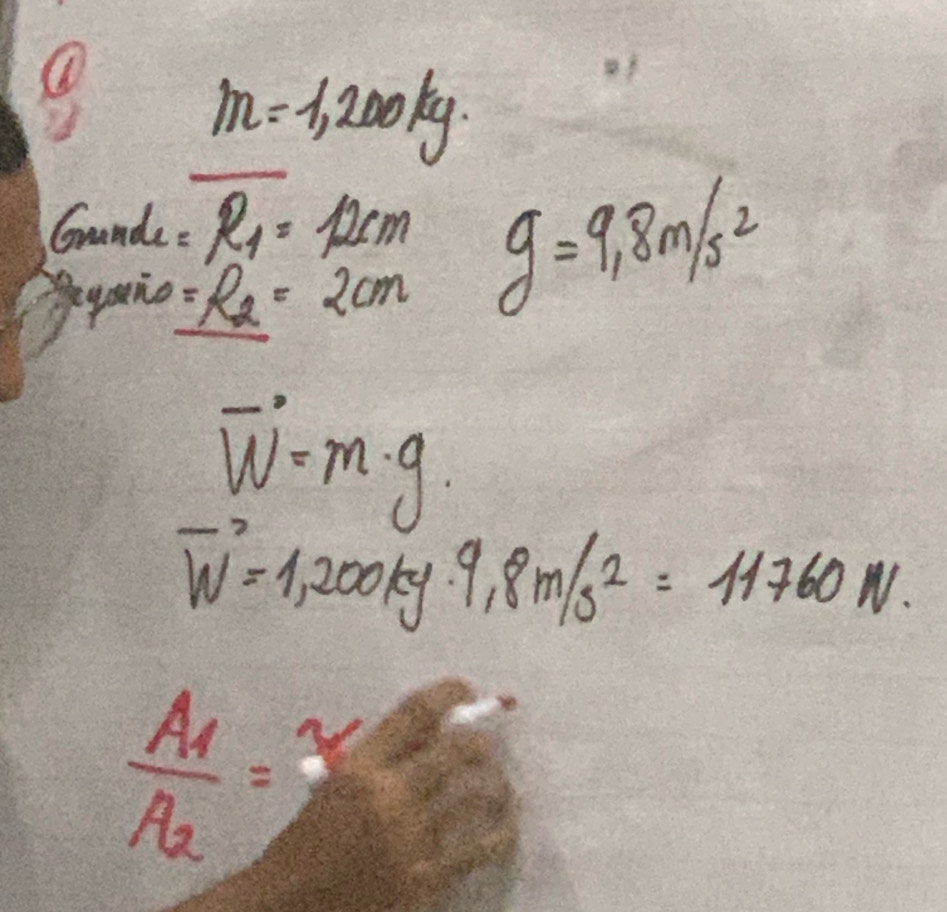 1
m = 1,200 kg.
Grande = R1 = 12cm
Pequeño = R2 = 2cm
g = 9,8 m/s²
W = m · g.
W = 1,200 kg · 9,8 m/s² = 11760 N.
A1/A2 =